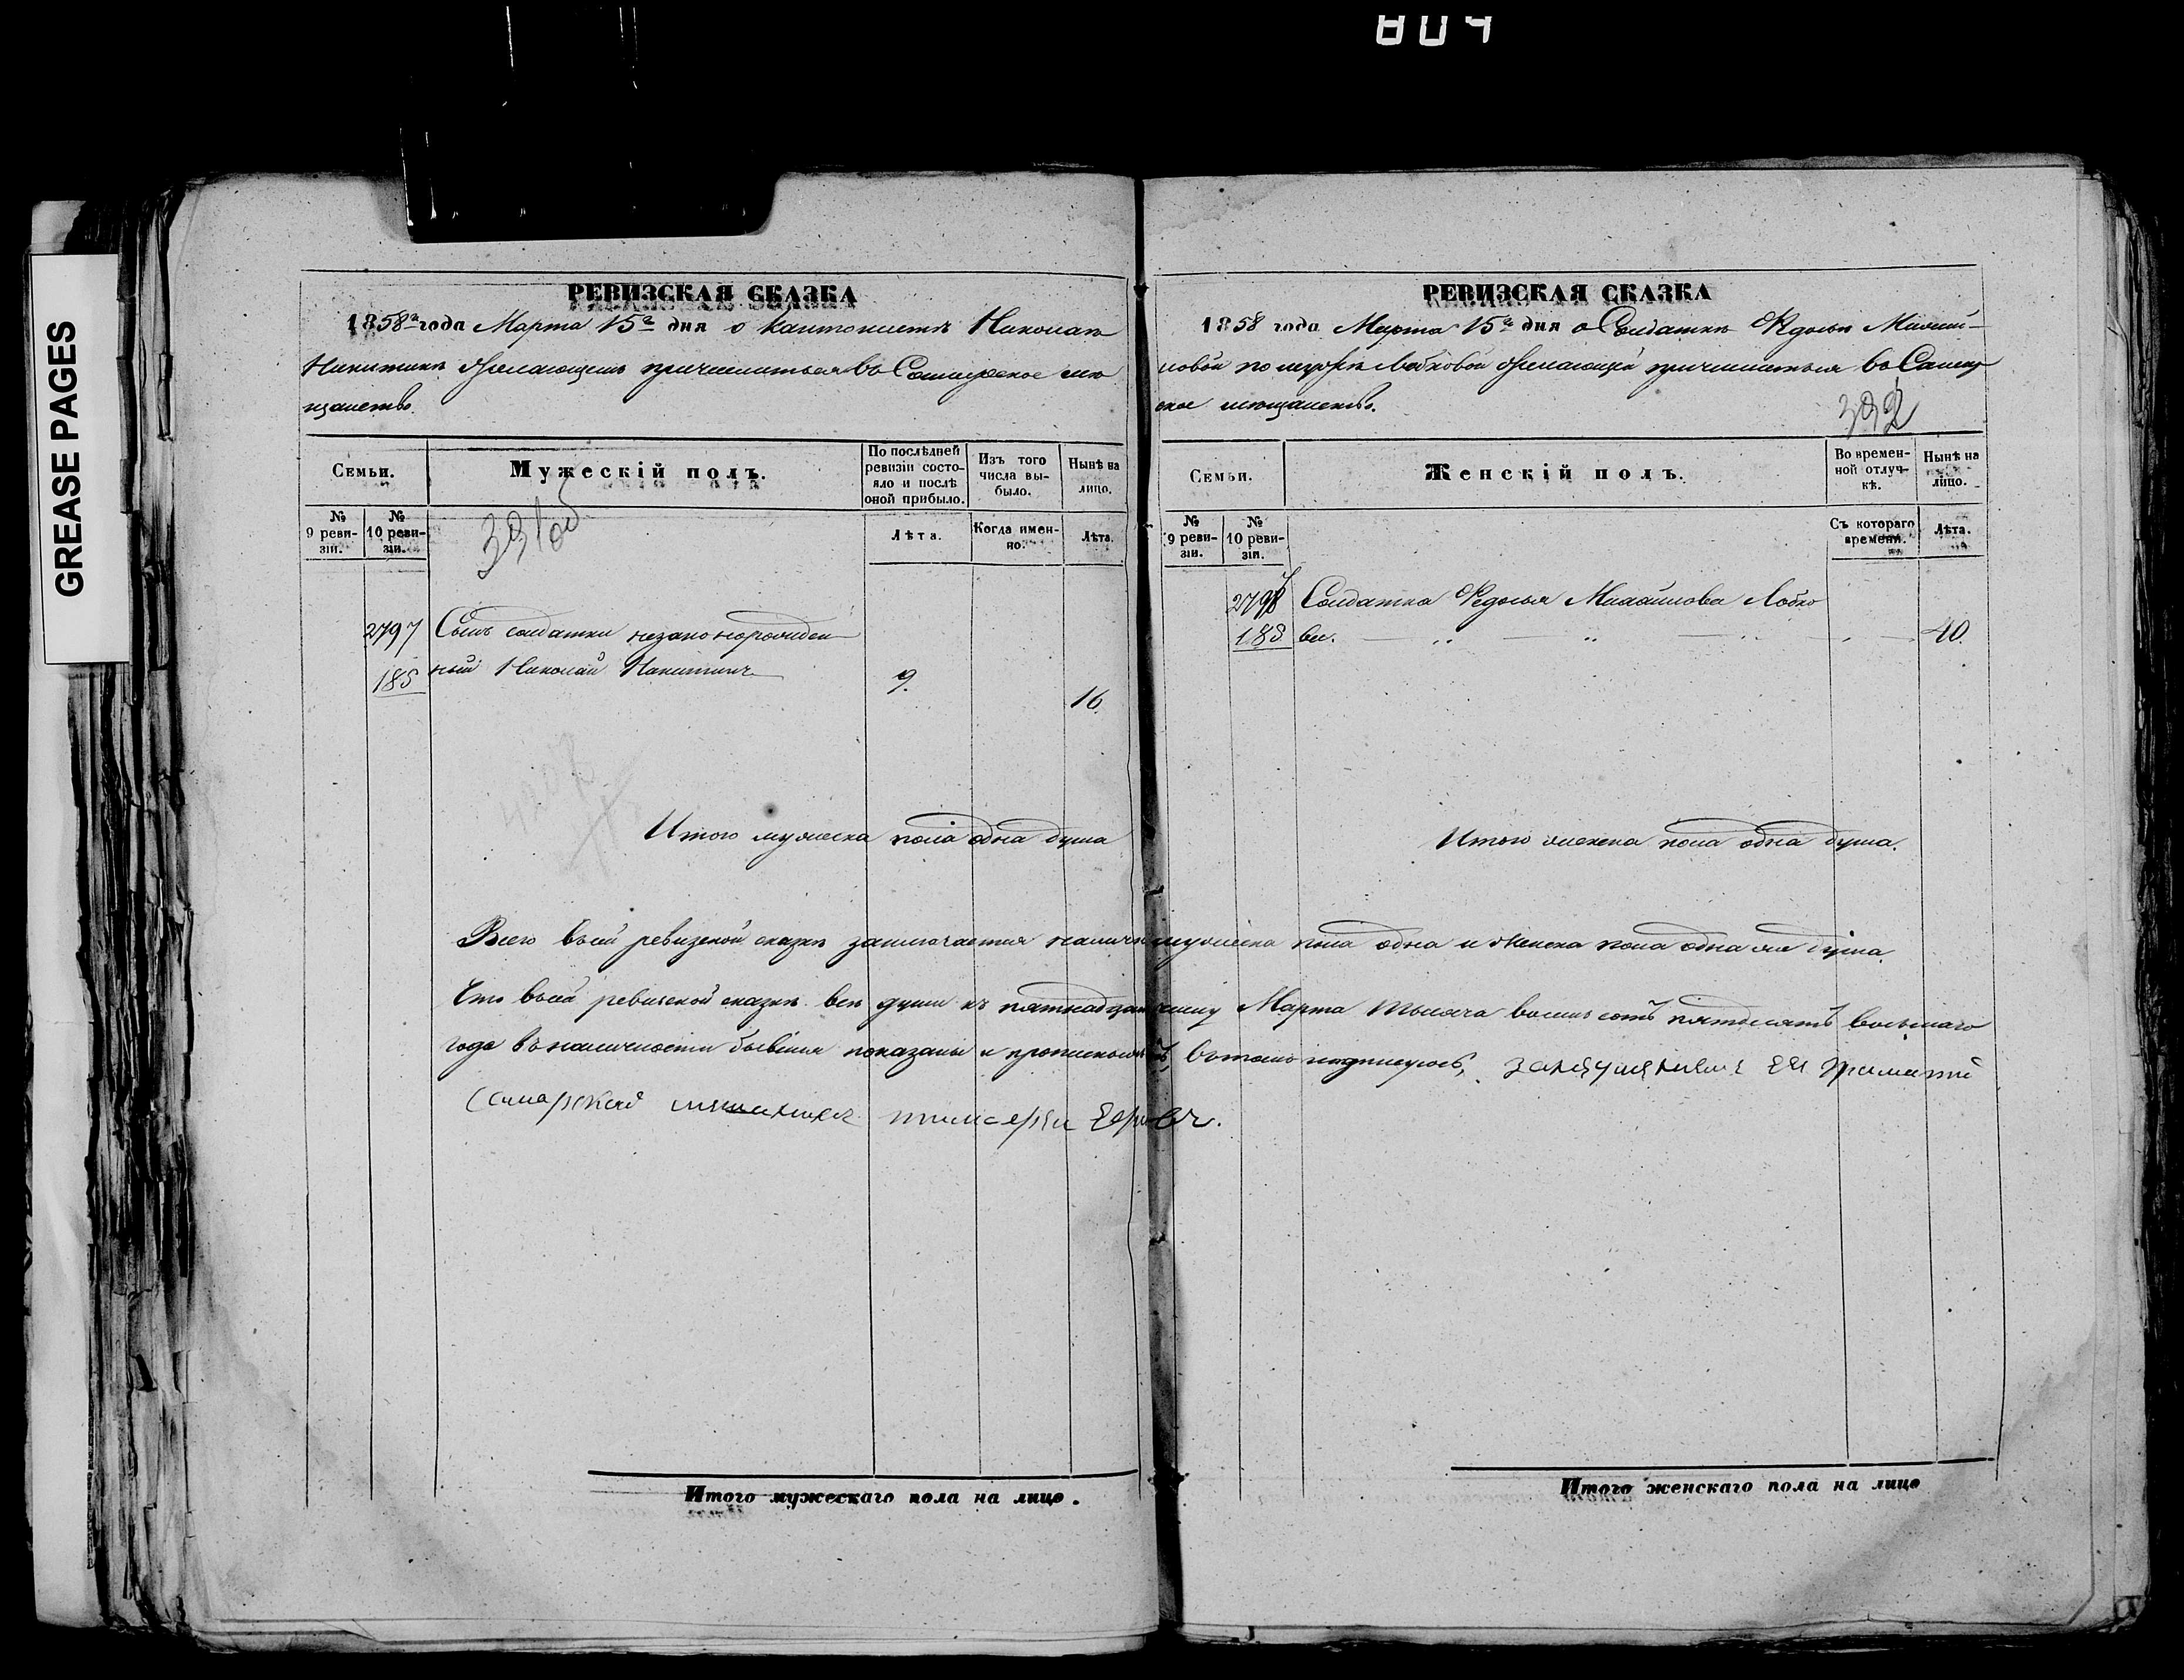 804
GREASE PAGES
РЕВИЗСКАЯ СКАЗКА
1858го года Марта 15го дня о Кантонистѣ Николаѣ
Никитинѣ желающемъ причислиться въ Самарское мѣ
щанство.
Семьи.
Мужескій полъ.
По послѣдней ревизіи состо-
яло и послѣ оной прибыло.
Изъ того числа вы-
было.
Нынѣ на лицо.
№ 9 реви-
зіи.
№ 10 реви-
зіи.
391 об
Лѣта.
Когда имен-
но.
Лѣта.
2797 Сынъ солдатки незаконорожден
185 ный Николай Никитинъ 9. 16
Итого мужеска пола одна душа
РЕВИЗСКАЯ СКАЗКА
1858 года Марта 15го дня о Солдаткѣ Ѳедосьи Михай-
ловой по мужѣ Лобковой желающей причислиться въ Самар
ское мѣщанство.
392
Семьи.
Женскій полъ.
Во времен-
ной отлуч-
кѣ.
Нынѣ на лицо.
№ 9 реви-
зіи.
№ 10 реви-
зіи.
Съ котораго времени.
Лѣта.
2797 Солдатка Ѳедосья Михайлова Лобко
185 ва. 40.
Итого женска пола одна душа.
Всего въ сей ревизской сказкѣ заключается мужеска пола одна и женска пола одна же душа.
Что въ сей ревизской сказкѣ всѣ души къ пятнадцатому Марта тысяча восемь сотъ пятдесятъ восьмаго
года въ наличности бывшія показаны и прописныхъ въ томъ подписуюсь,
Самарской мещанинъ
Итого мужескаго пола на лицо.
Итого женскаго пола на лицо